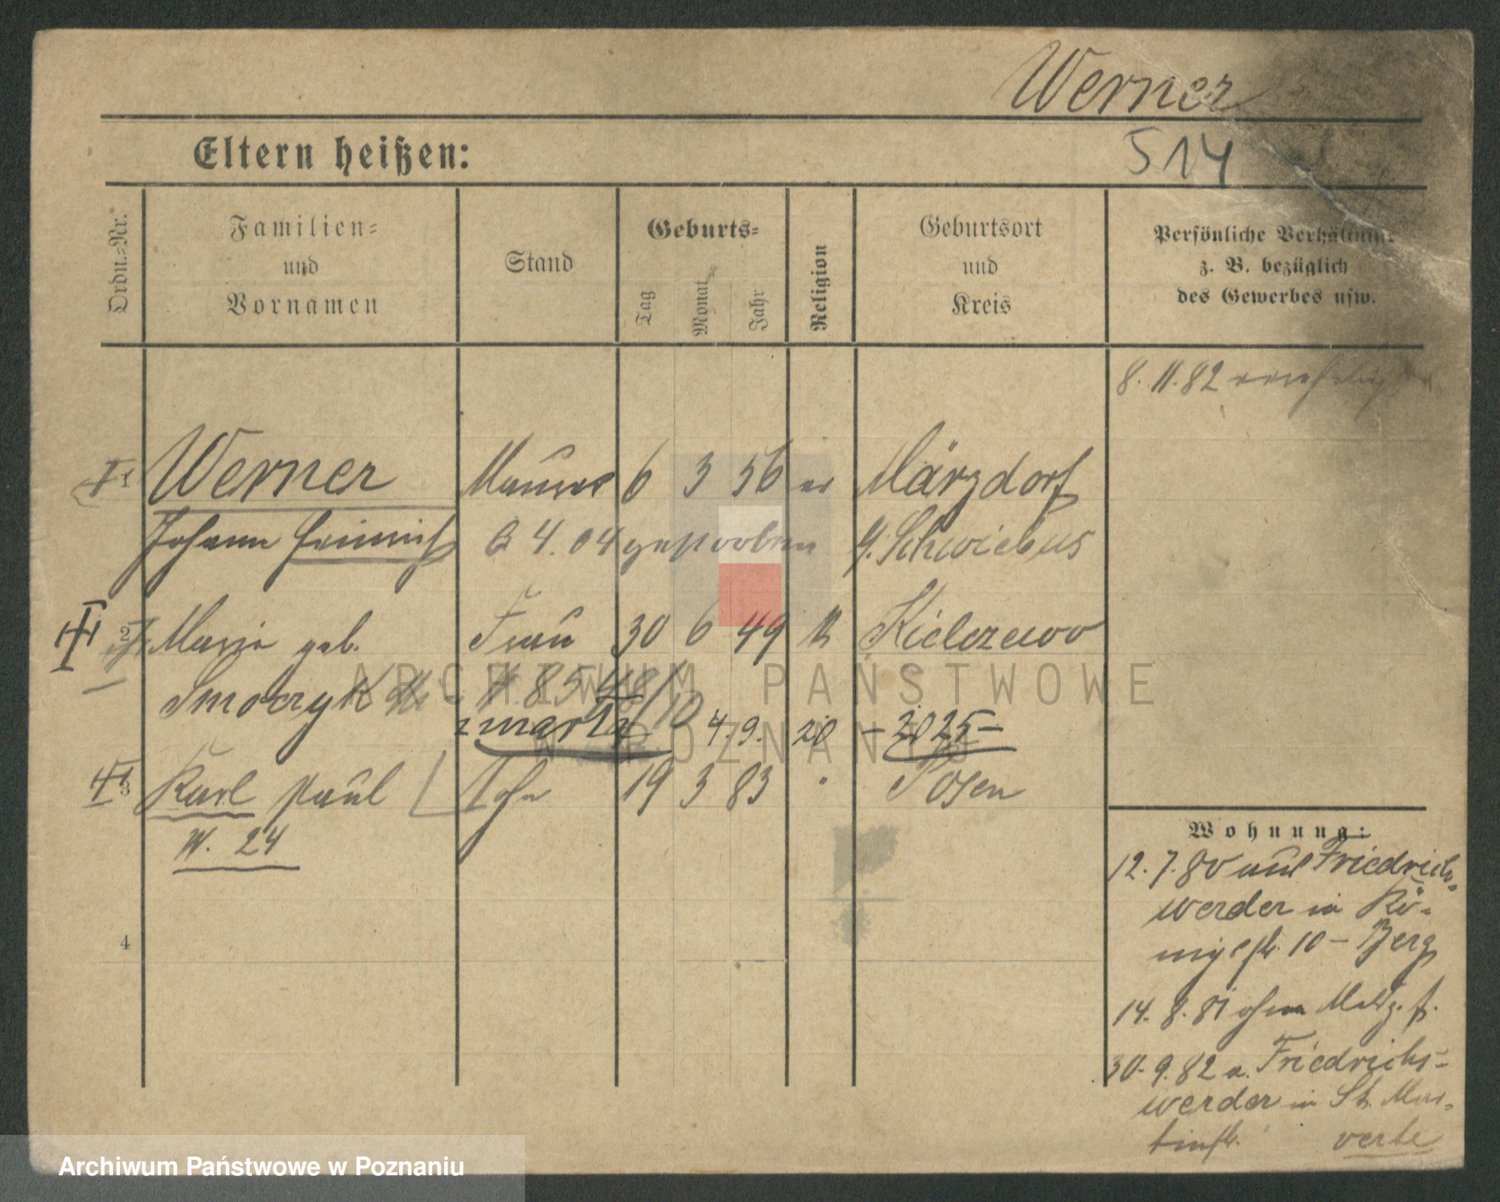 Werner
514
Eltern heißen:
Ordn.-Nr.
Familien-
und
Vornamen
Stand
Geburts-
Tag
Monat
Jahr
Religion
Geburtsort
und
Kreis
Persönliche Verhältnisse
z. B. bezüglich
des Gewerbes usw.
8. 11. 82
1 Werner Maurer 6 3 56 ev Märzdorf
Johann Heinrich 6 4. 04 gestorben Schwiebus
2 Marie geb. Frau 30 6 49 k Kielczewo
Smoczyk
zmarła 4. 9. 20 – 2025 –
3 Karl Paul Sohn 19 3 83 Posen
W. 24
4
Wohnung:
12. 7. 80 aus Friedrichs-
werder in Kö-
nigsstr. 10 – Berg
14. 8. 81 ohne
30. 9. 82 a. Friedrichs-
werder in St. Mar-
tinstr. verte
ARCHIWUM PAŃSTWOWE
W POZNANIU
Archiwum Państwowe w Poznaniu